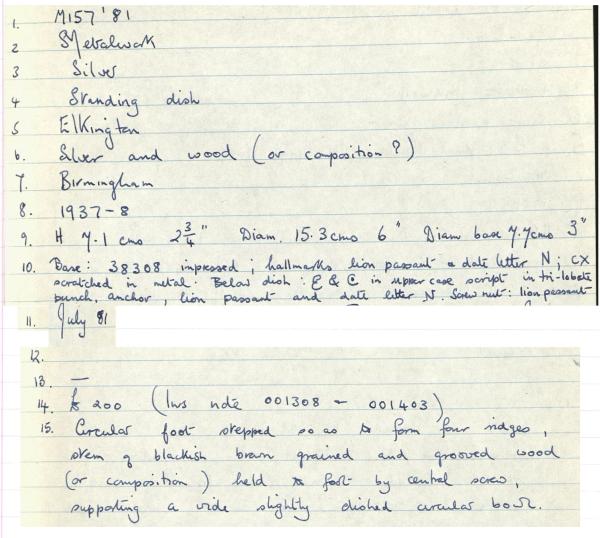 1. M157 '81
2 Metalwork
3 Silver
4 Standing dish
5 Elkington
6. Silver and wood (or composition?)
7. Birmingham
8. 1937-8
9. H 7.1 cms 2 3/4" Diam. 15.3 cms 6" Diam base 7.7 cms 3"
10. Base: 38308 impressed; hallmarks lion passant & date letter N; CX
scratched in metal. Below dish: E & C in upper case script in tri-lobate
punch, anchor, lion passant and date letter N. Screw nut: lion passant
11. July 81
12.
13. —
14. £ 200 (Inv note 001308 - 001403)
15. Circular foot stepped so as to form four ridges,
stem of blackish brown grained and grooved wood
(or composition) held to foot by central screw,
supporting a wide slightly dished circular bowl.